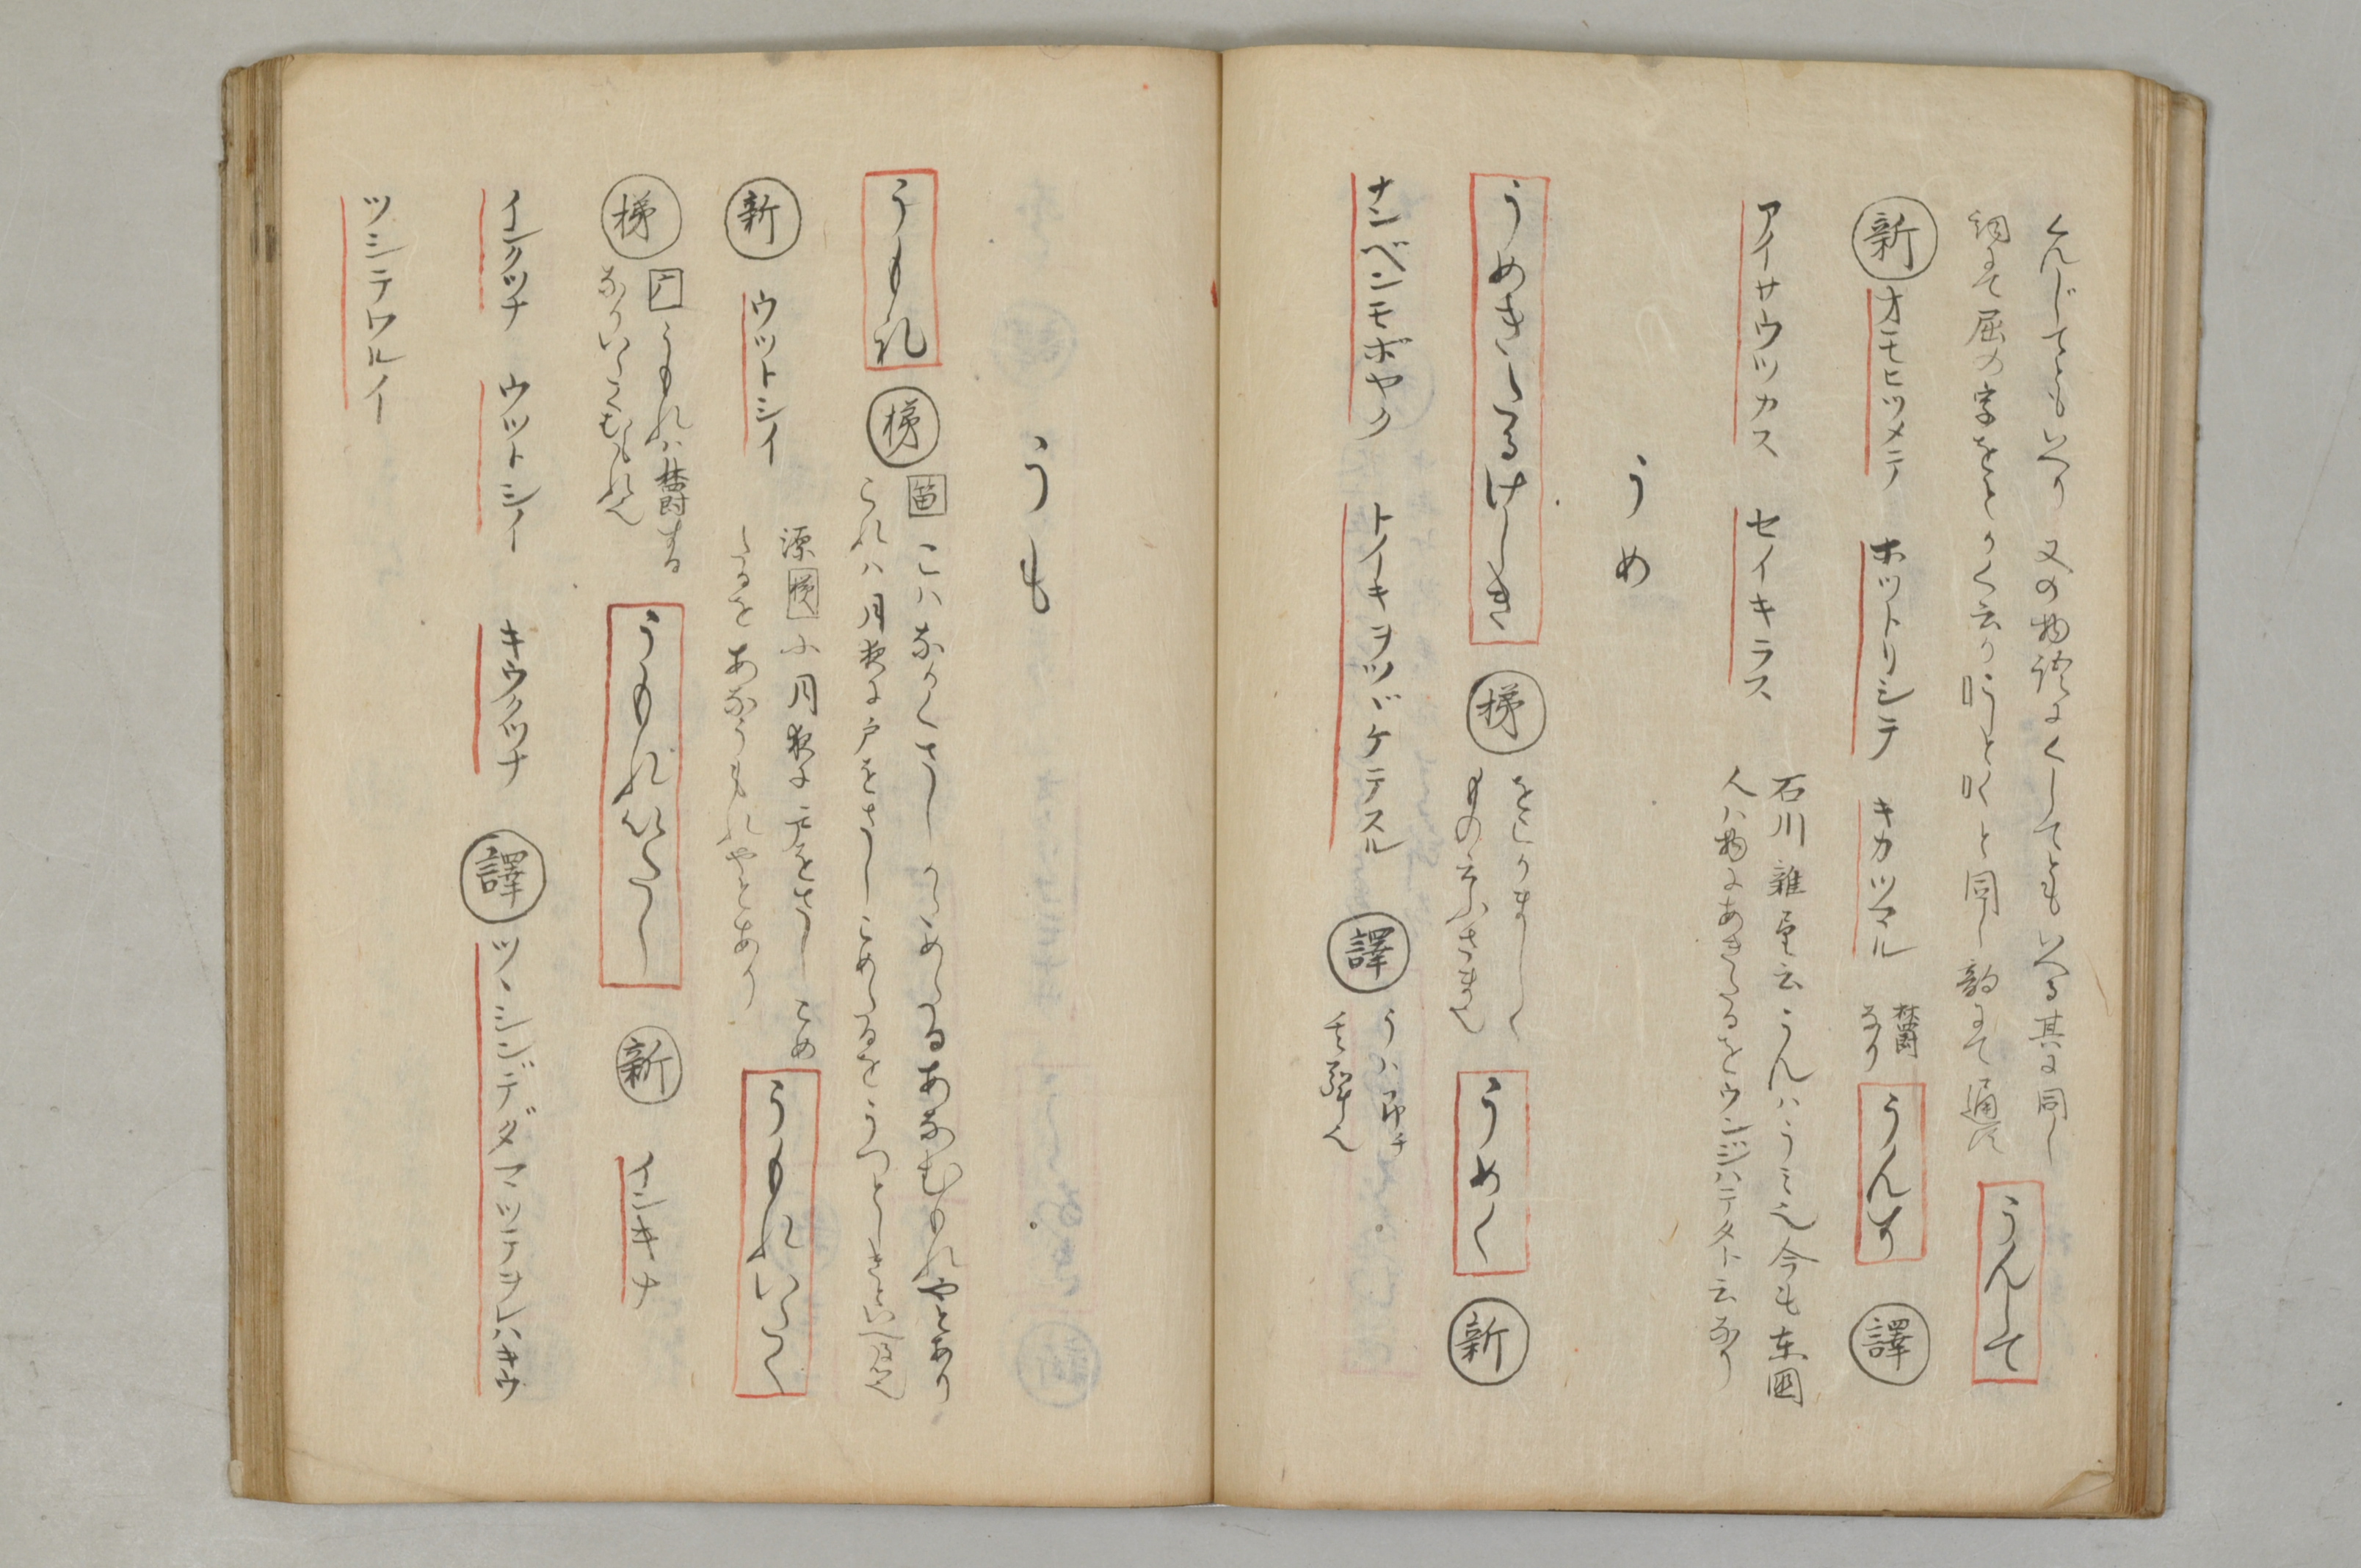 くんじてともいへり 又の物語にくしてともいへる其に同し
詞にて屈の字をとかく云り と同し韵にて通へり うんして
新 オモヒツメテ ホットリシテ キカツマル 欝なり うんず 譯
アイサウツカス セイキラス 石川雅望云うんハうミ也今も東國
人ハ物にあきたるをウンジハテタト云なり
うめ
うめきたるけしき 梯 をこかましく
もの云ふさま也 うめく 新
ナンベンモボヤク トイキヲツヾケテスル 譯 うハ即チ
うも
うもれ 梯 こハなかくさしかためたるあなむもれやとあり
これハ月夜に戸をさしこめたるをうつとしきといへる也
新 ウットシイ 源 小月夜に戸をさしこめ
たるをあなうもれやとあり うもれいたく
梯 うもれハ欝する
なりいたくむもれ也 うもれいたし 新 インキナ
インクツナ ウットシイ キウクツナ 譯 ツヽシンデダマッテヲレハキウ
ツシテワルイ